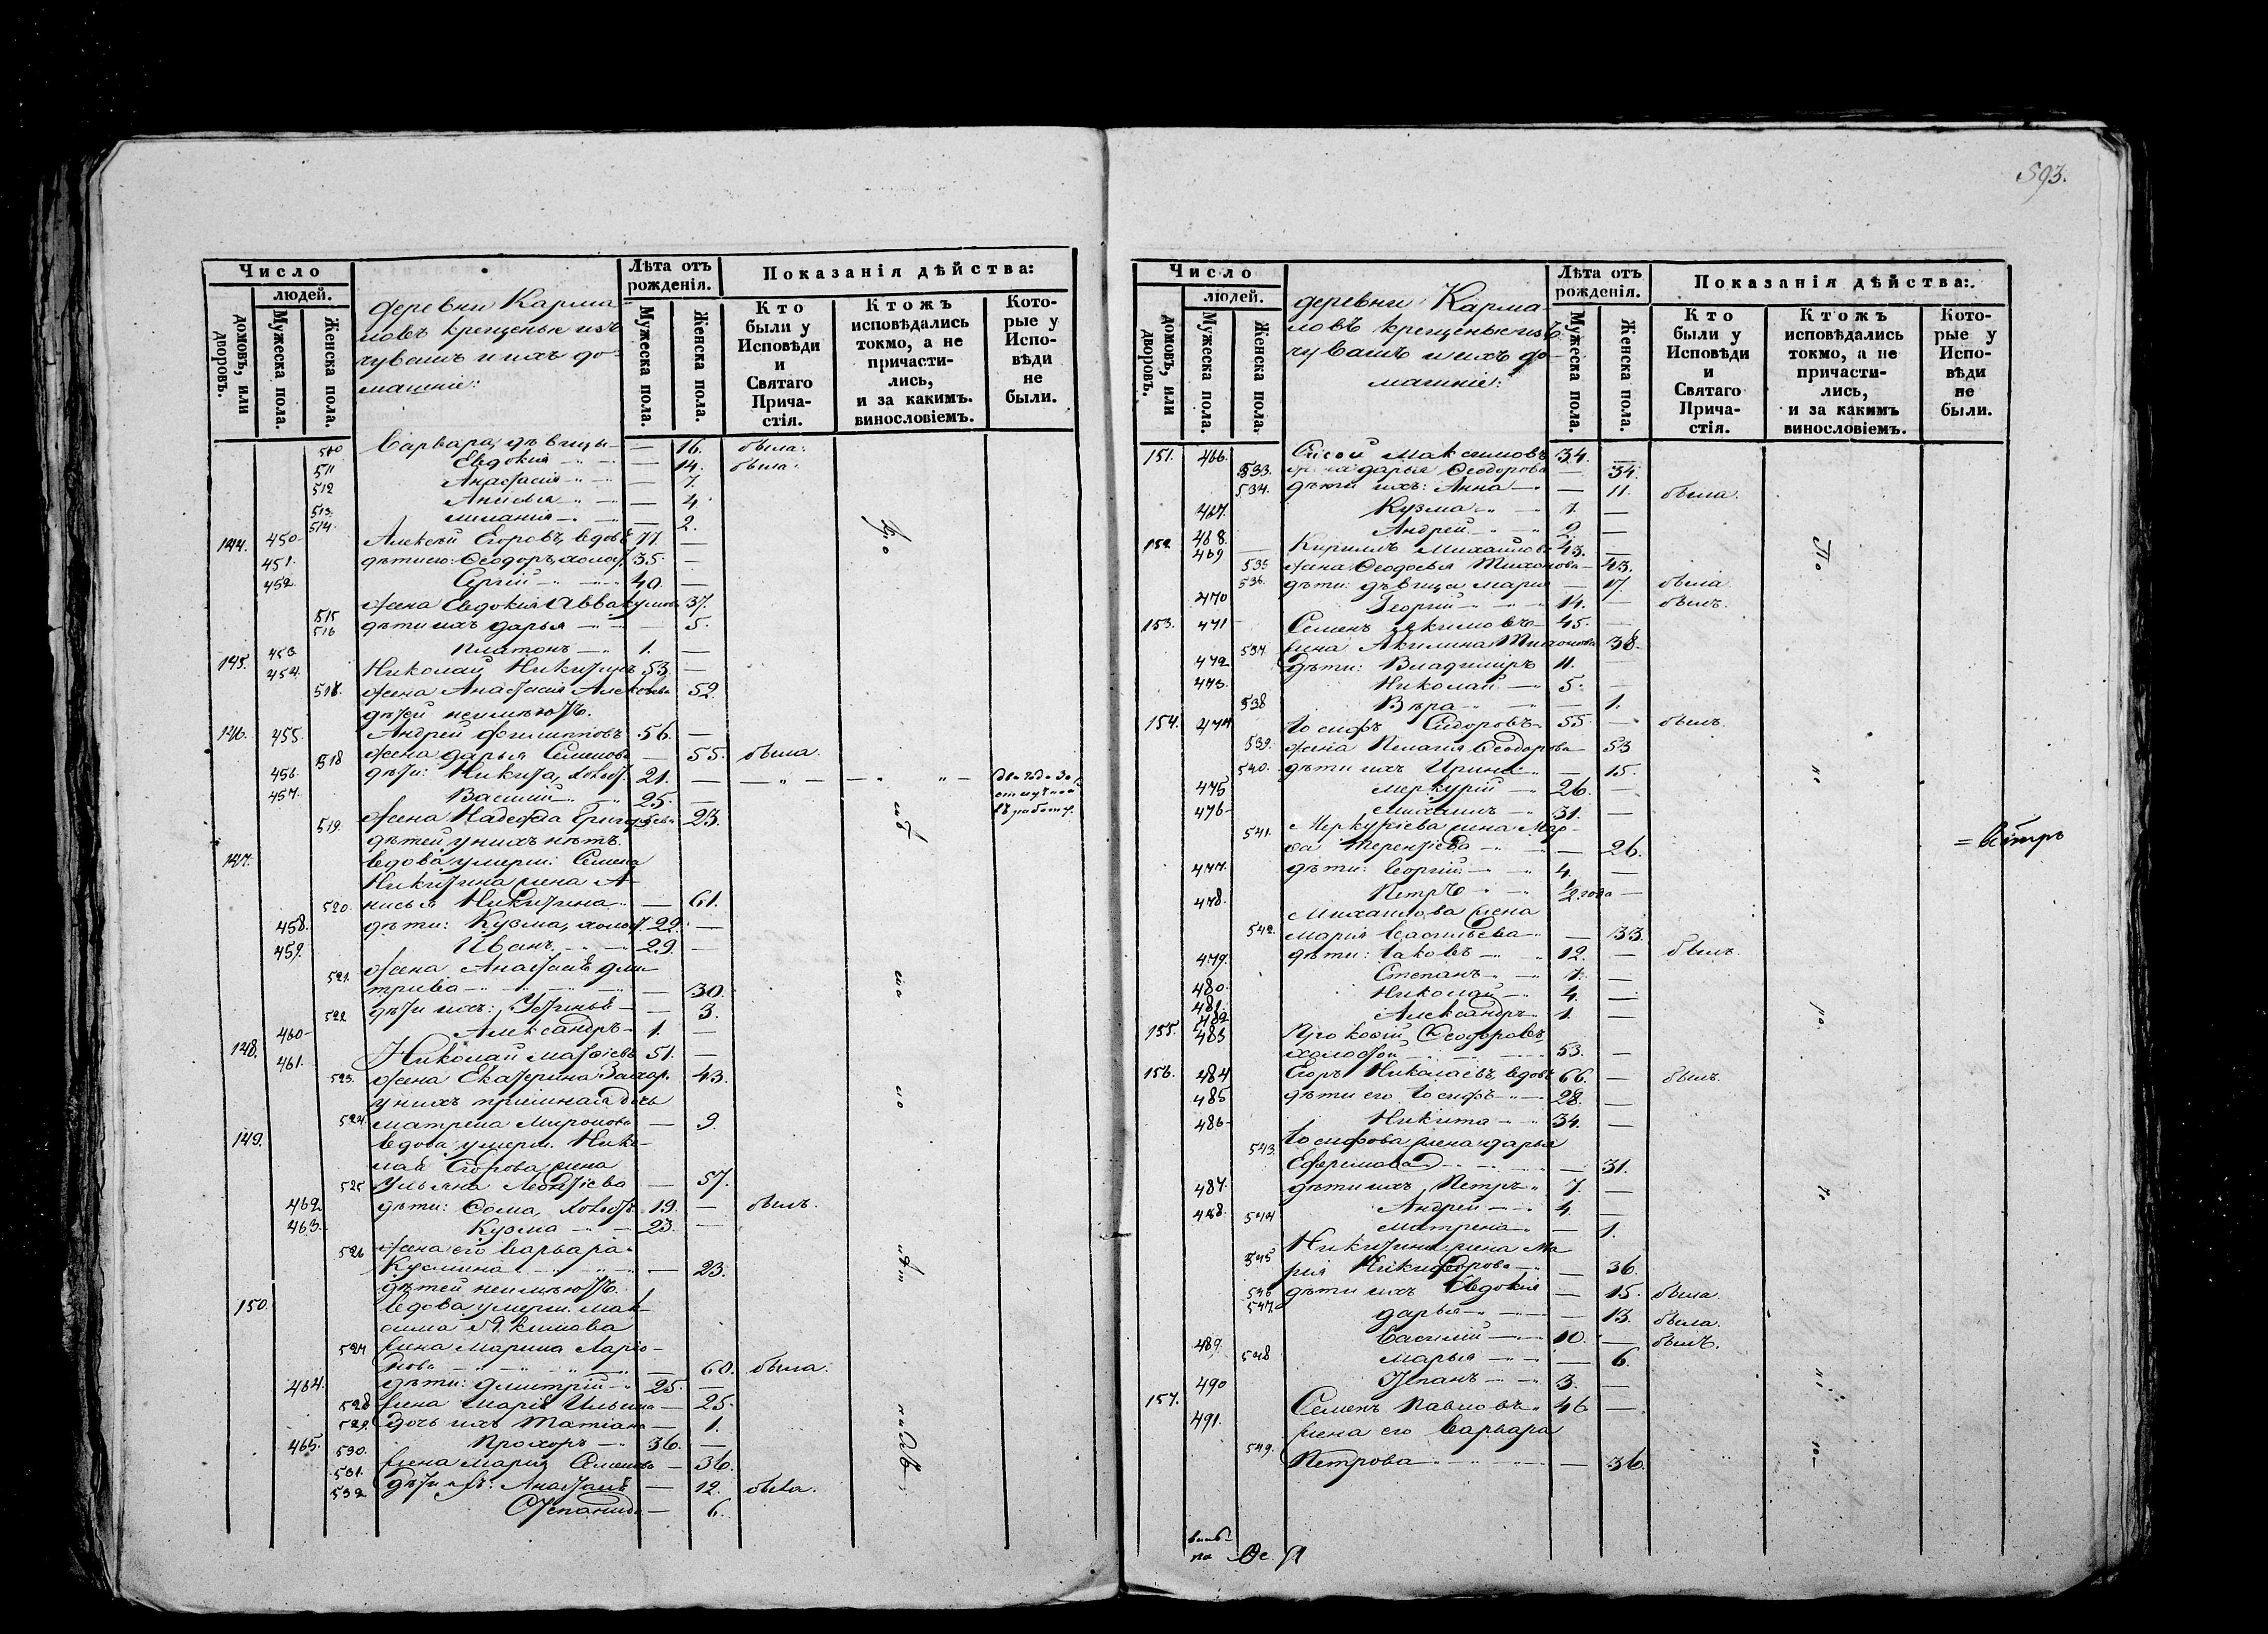 593.
Число
людей.
домовъ, или дворовъ.
Мужеска пола.
Женска пола.
деревни Карма-
ловъ крещеные изъ
чувашъ и ихъ до-
машніе:
Лѣта отъ рожденія.
Мужеска пола.
Женска пола.
Показанія дѣйства:
Кто были у Исповѣди и Святаго Прича-стія.
Ктожъ исповѣдались токмо, а не причасти-лись, и за какимъ. винословіемъ.
Кото-рые у Испо-вѣди не были.
510 Варвара, дѣвицы — 16. была.
511 Евдокия — 14. была.
512 Анастасия — 7.
513. Анисья — 4.
514. Мелания — 2.
144. 450 Алексѣй Егоровъ, вдовъ 77. —
451. дѣти его: Ѳеодоръ, холост 35. —
452. Сергій 40. —
515 жена Евдокия Аввакумова 37.
516 дѣти ихъ Дарья — 5.
453. Платонъ 1. —
145. 454. Николай Никитинъ 53. —
517. жена Анастасия Алексѣева 52.
дѣтей неимѣютъ.
146. 455. Андрей Филипповъ 56. —
518 жена Дарья Семенова — 55. была.
456. дѣти: Никита, холост. 21. —
457. Василий 25. —
въ работу.
519. жена Надежда Григорьева 23.
дѣтей у нихъ нѣтъ.
147. вдова умерш: Семена
Никитина жена А-
520. нисья Никитина — 61.
458. дѣти: Кузма, холост. 22. —
459. Иванъ 29. —
521. жена Анастасия Дми-
триева — 30.
522 дѣти ихъ: Устинья — 3.
460 Александръ 1. —
148. 461. Николай Матѳіевъ 51. —
523. жена Екатерина Захар. 43.
у нихъ пріемная дочь
524. Матрена Миронова — 9.
149. вдова умерш. Нико-
лая Егорова жена
525 Ульяна Леонтіева — 57.
462 дѣти: Ѳома, холост. 19. — былъ.
463. Кузма 23. —
526 жена его Варвара
Кузмина — 23.
дѣтей неимѣютъ.
150. вдова умерш. Мак-
сима Якимова
527 жена Марина Ларіо-
нова — 60. была.
464. дѣти: Дмитрій 25. —
528 жена Марія Ильина — 25.
529. дочь ихъ Татіана — 1.
465. Прохоръ 36. —
530. жена Мария Семенова — 36.
531. дѣти ихъ: Анастасія — 12. была.
532 Степанида — 6.
Число
людей.
домовъ, или дворовъ.
Мужеска пола.
Женска пола.
деревни Карма-
ловъ крещеные изъ
чувашъ и ихъ до-
машніе:
Лѣта отъ рожденія.
Мужеска пола.
Женска пола.
Показанія дѣйства:
Кто были у Исповѣди и Святаго Прича-стія.
Ктожъ исповѣдались токмо, а не причасти-лись, и за какимъ винословіемъ.
Кото-рые у Испо-вѣди не были.
151. 466. Сисой Максимовъ 34. —
533. жена Дарья Ѳеодорова — 34.
534. дѣти ихъ: Анна — 11. была.
467. Кузма 7. —
468. Андрей 2. —
152 469 Кирилъ Михайловъ 43. —
535 жена Ѳеодосья Тихонова — 43.
536. дѣти: дѣвица Мария — 17. была
470 Георгий 14. — былъ.
153. 471 Семенъ Якимовъ 45. —
537 жена Акилина Тихонова 38.
472 дѣти: Владимиръ 11. —
473. Николай 5. —
538 Вѣра — 1.
154. 474 Іосифъ Сидоровъ 55. — былъ
539. жена Пелагия Ѳеодорова 53
540. дѣти ихъ Ирина — 15.
475 Меркурій 26. —
476 Михаилъ 31. —
541. Меркуріева жена Мар-
ѳа Терентіева — 26.
477. дѣти: Георгій 4. —
478. Петръ 1/2 года —
Михаилова жена
542. Мария Васильева — 33.
479. дѣти: Іаковъ 12. — былъ
480. Степанъ 7. —
481. Николай 4. —
482 Александръ 1. —
155. 483 Прокопій Ѳеодоровъ,
холостой 53. —
156. 484 Егоръ Николаевъ, вдовъ 66. — былъ.
485 дѣти его Іосифъ 28. —
486 Никита 34. —
543. Іосифова жена Дарья
Ефремова — 31.
487. дѣти ихъ Петръ 7. —
488. Андрей 4. —
544 Матрена — 1.
Никитина жена Ма
545 рия Никифорова — 36.
546 дѣти ихъ Евдокия — 15. была
547 Дарья — 13. была.
489. Василий 10. — былъ.
548 Марья — 6.
490 Степанъ 3. —
157. 491. Семенъ Павловъ 46 —
жена его Варвара
549. Петрова — 36.